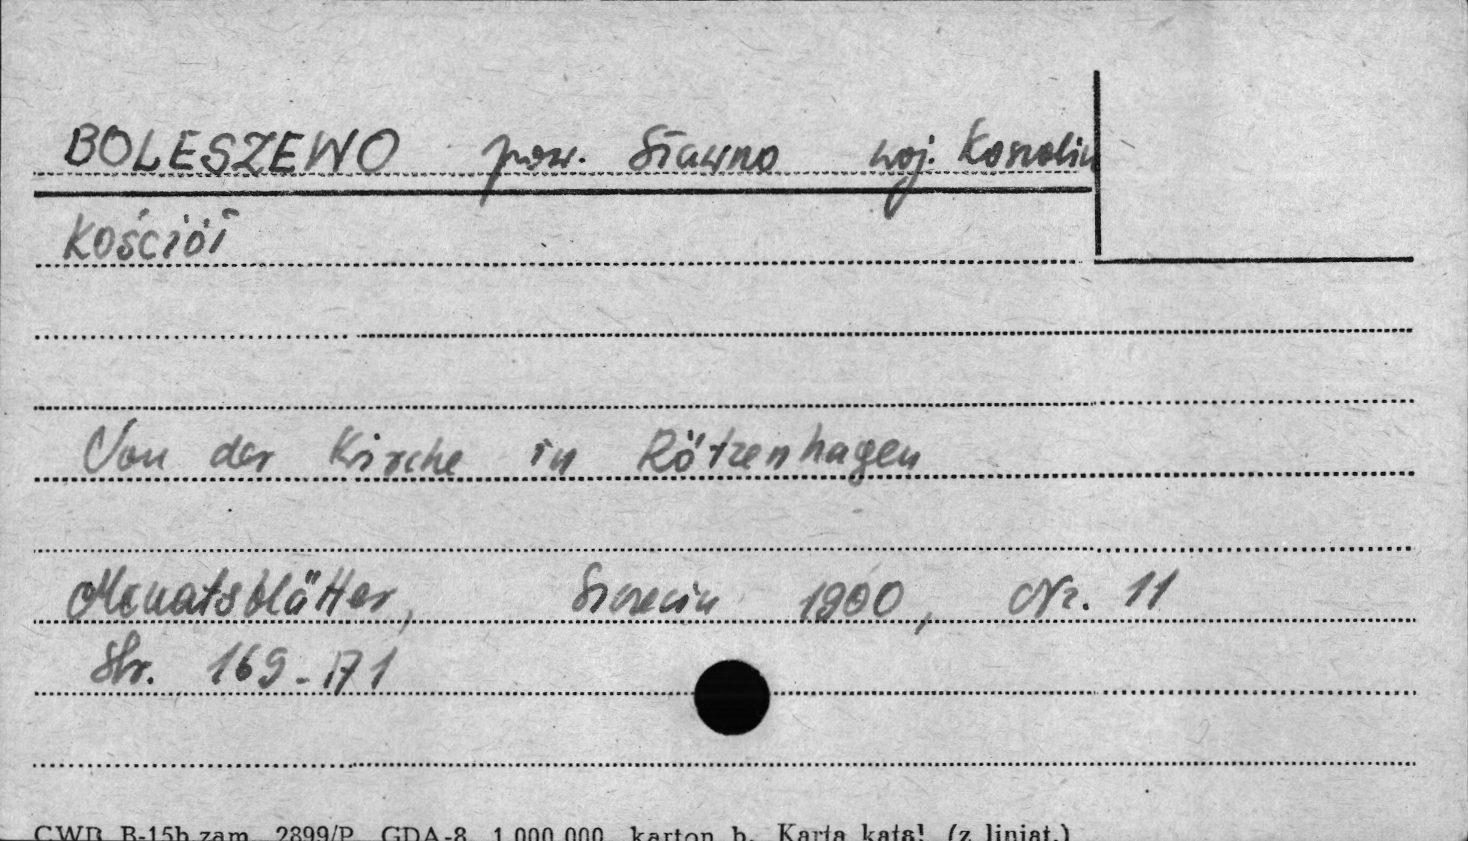 BOLESZEWO pow. Sławno woj. Koszalin
Kościół
Von der Kirche in Rötzenhagen
Monatsblätter, Szczecin 1900, Nr. 11
Str. 169-171
CWD B-15b zam. 2899/P GDA-8 1.000.000 karton b. Karta katal. (z liniat.)